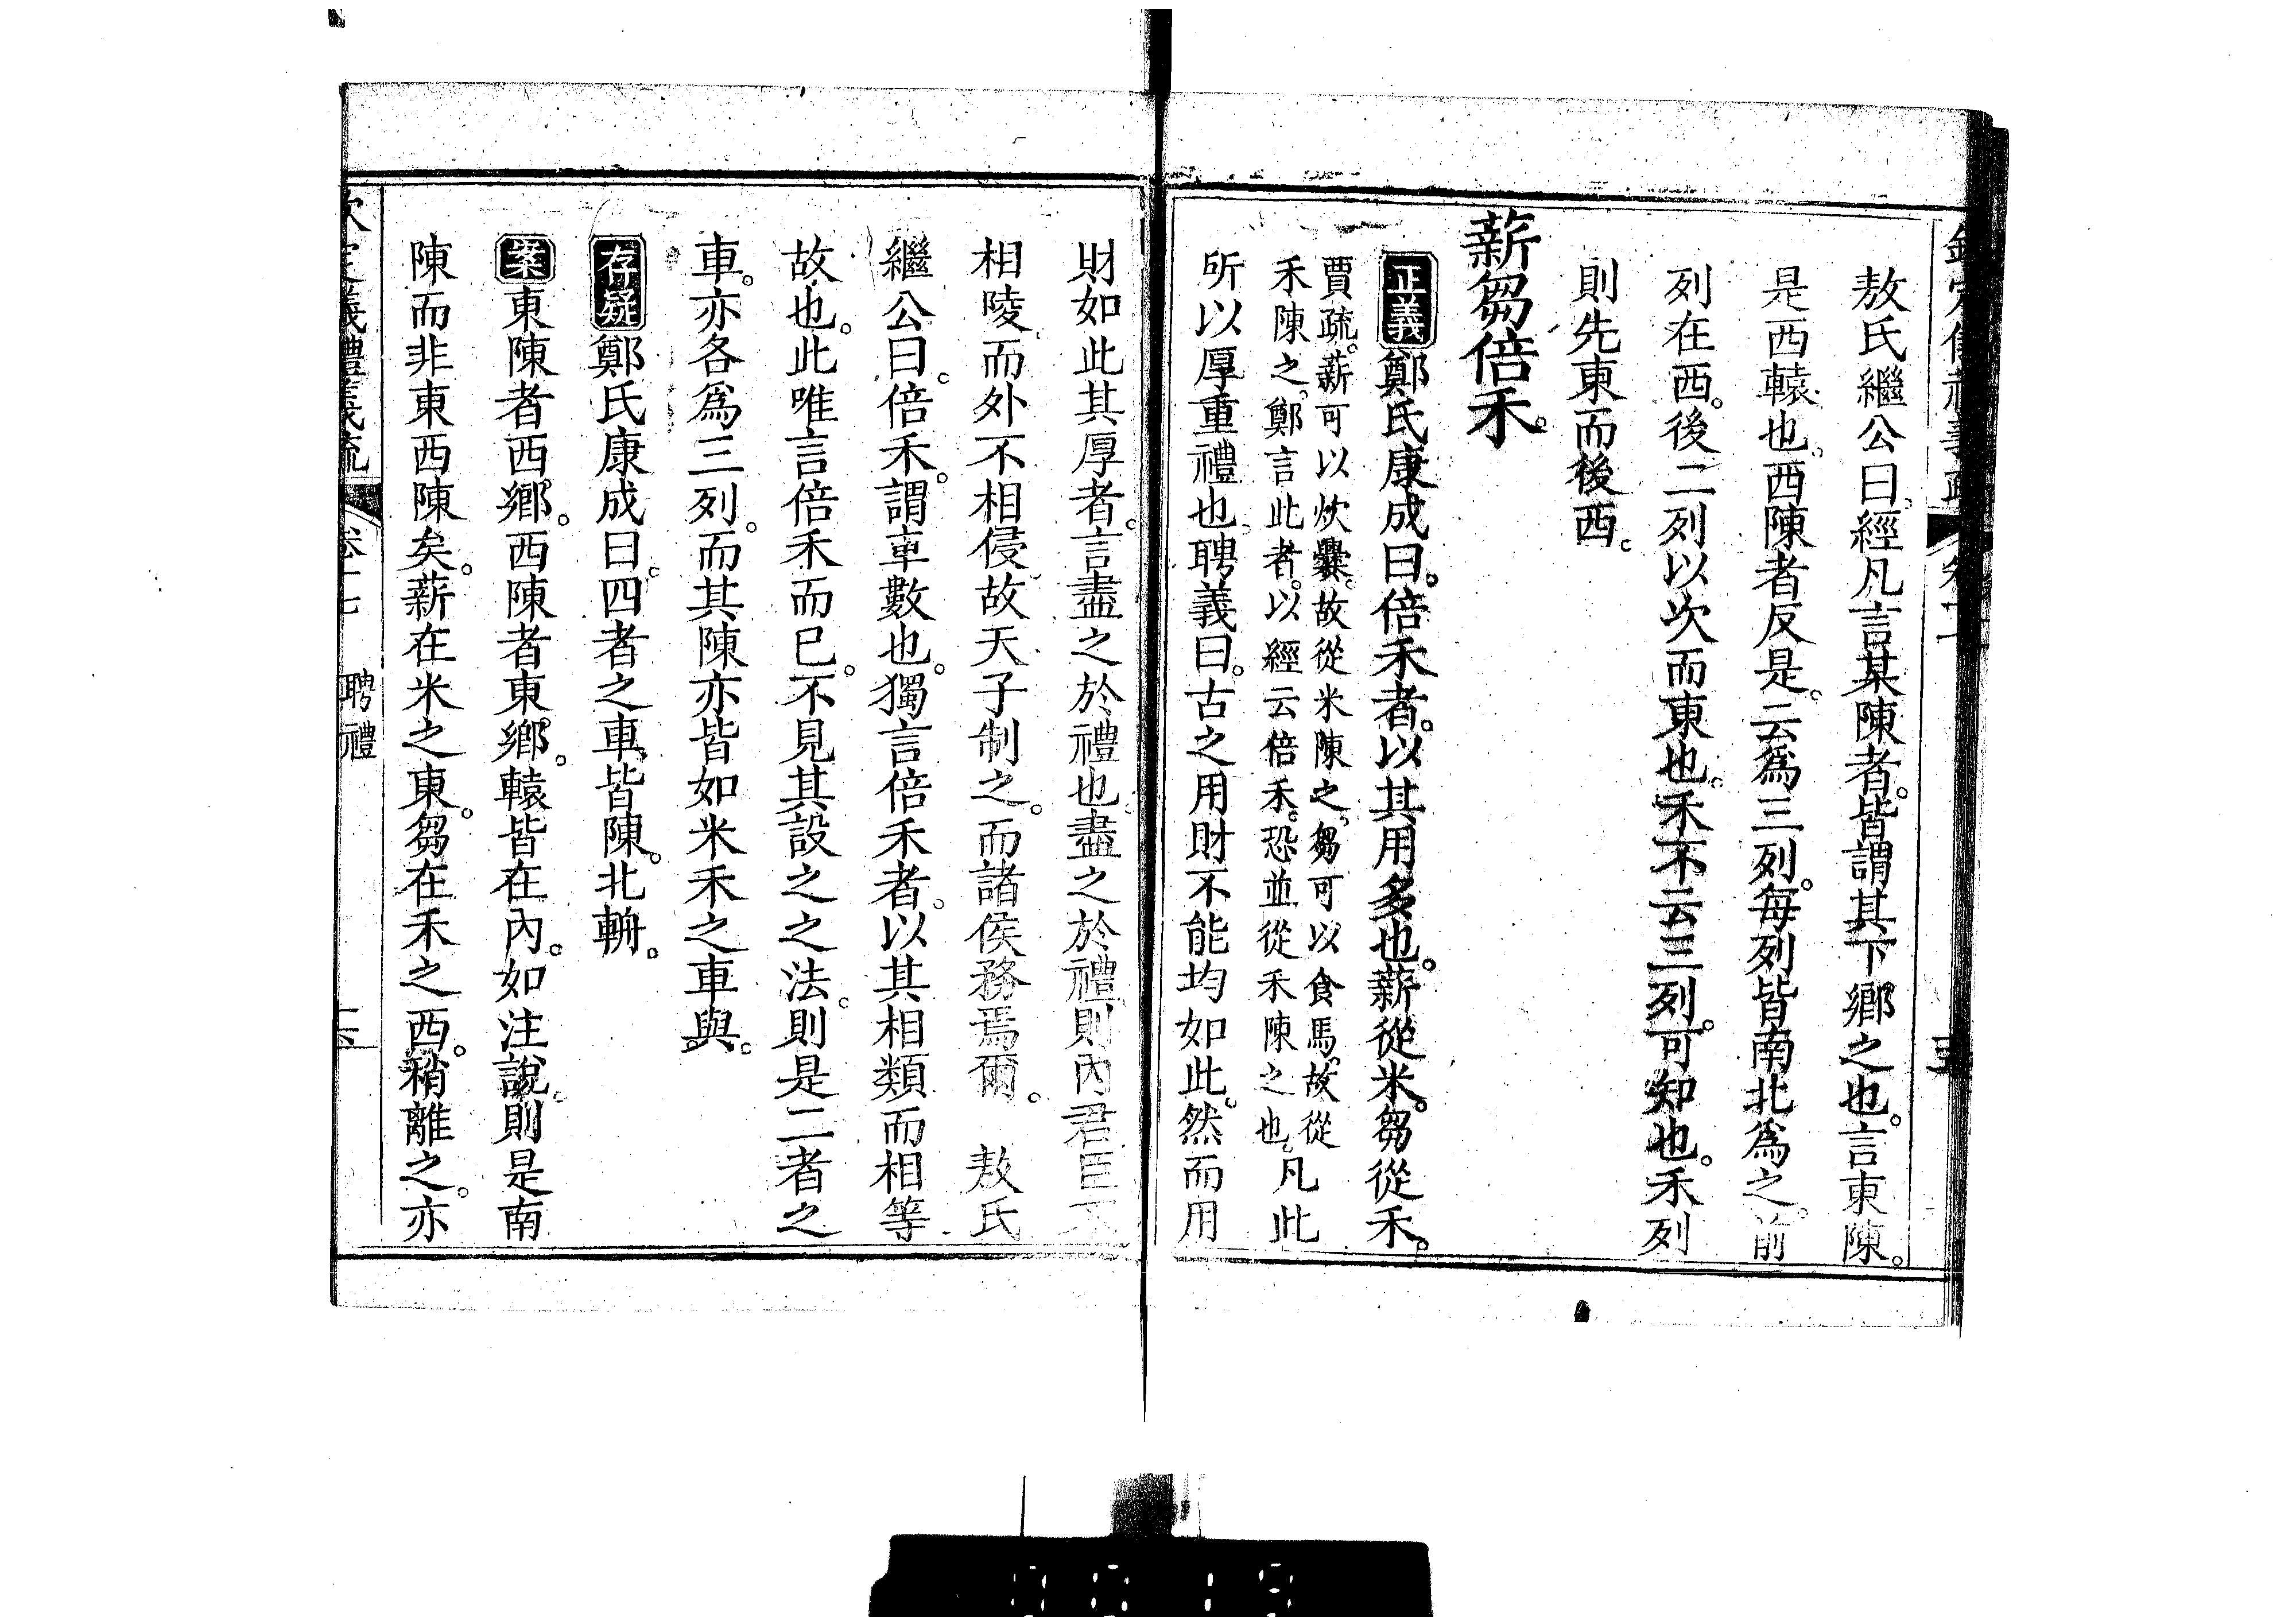 敖氏繼公曰經凡言某陳者。皆謂其下鄉之也。言東陳。
是西轅也。西陳者反是。云爲三列。每列皆南北爲之。前
列在西。後二列以次而東也。禾不云三列。可知也。禾列
則先東而後西。
薪芻倍禾。
正義鄭氏康成曰。倍禾者。以其用多也。薪從米。芻從禾。
賈疏。薪可以炊爨。故從米陳之。芻可以食馬。故從
禾陳之。鄭言此者。以經云倍禾。恐並從禾陳之也。凡此
所以厚重禮也。聘義曰。古之用財不能均如此。然而用
財如此其厚者。言盡之於禮也。盡之於禮。則內君臣不
相陵。而外不相侵。故天子制之。而諸侯務焉爾。 敖氏
繼公曰。倍禾。謂車數也。獨言倍禾者。以其相類而相等
故也。此唯言倍禾而已。不見其設之之法。則是二者之
車。亦各爲三列。而其陳亦皆如米禾之車與。
存疑鄭氏康成曰。四者之車皆陳。北輈。
案東陳者西鄉。西陳者東鄉。轅皆在內。如注說。則是南
陳而非東西陳矣。薪在米之東。芻在禾之西。稍離之。亦
欽定義禮義疏 卷十七 聘禮